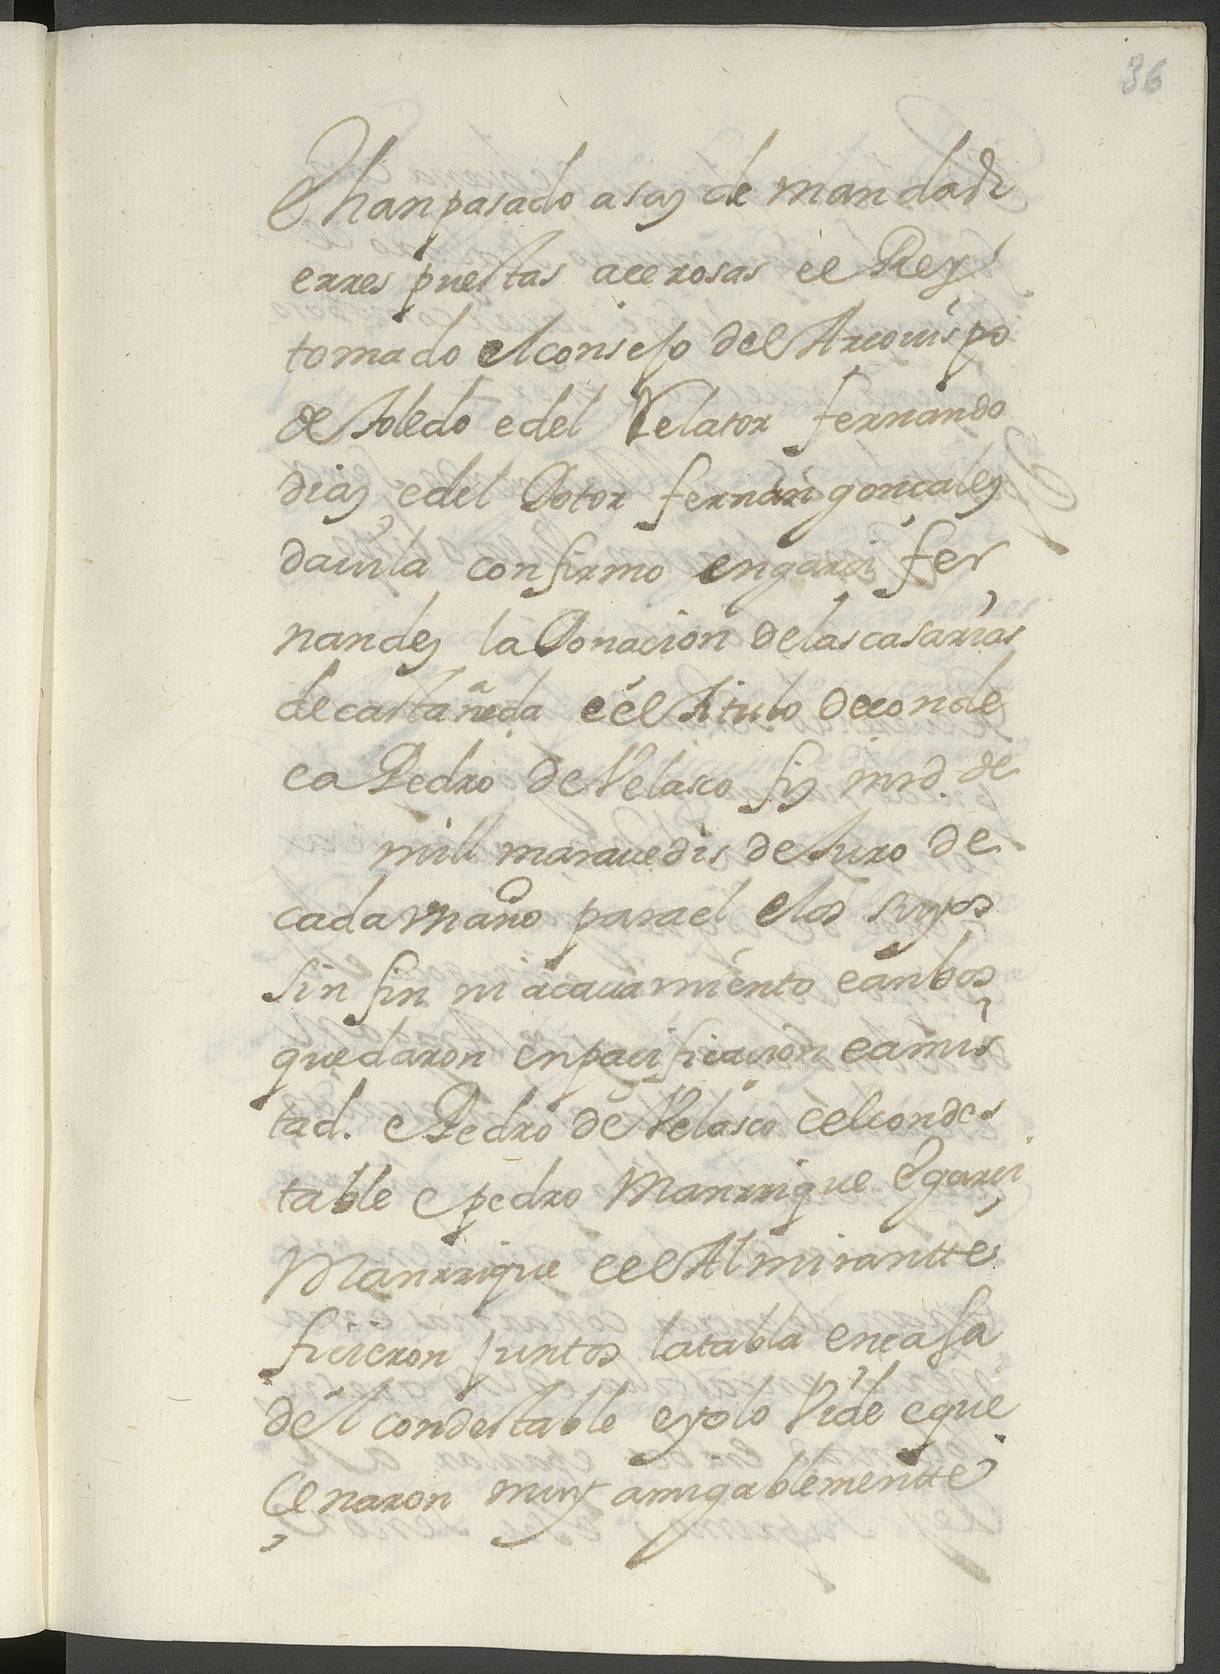 36
E han pasado asaz de mandadr
erres puestas acerosas ee Rey
tomado el consejo del Arcovispo
de Toledo e del Relator fernando
diaz e del Dotor fernan gonçalez
davila confirmo en garci fer
nandez la Donacion de las casarias
de castañeda e el titulo de conde
e a Pedro de Velasco fiz mrd. de
mill maravedis de juro de
cada vn año para el e los suyos
sin fin ni acavamiento e anbos
quedaron en pacificacion e amis
tad. e Pedro de Velasco e el condes
table e pedro Manrrique e garci
Manrrique e el Almirantte
ficieron juntos la tabla en casa
del condestable e yo lo Vide e que
Çenaron muy amigablementte